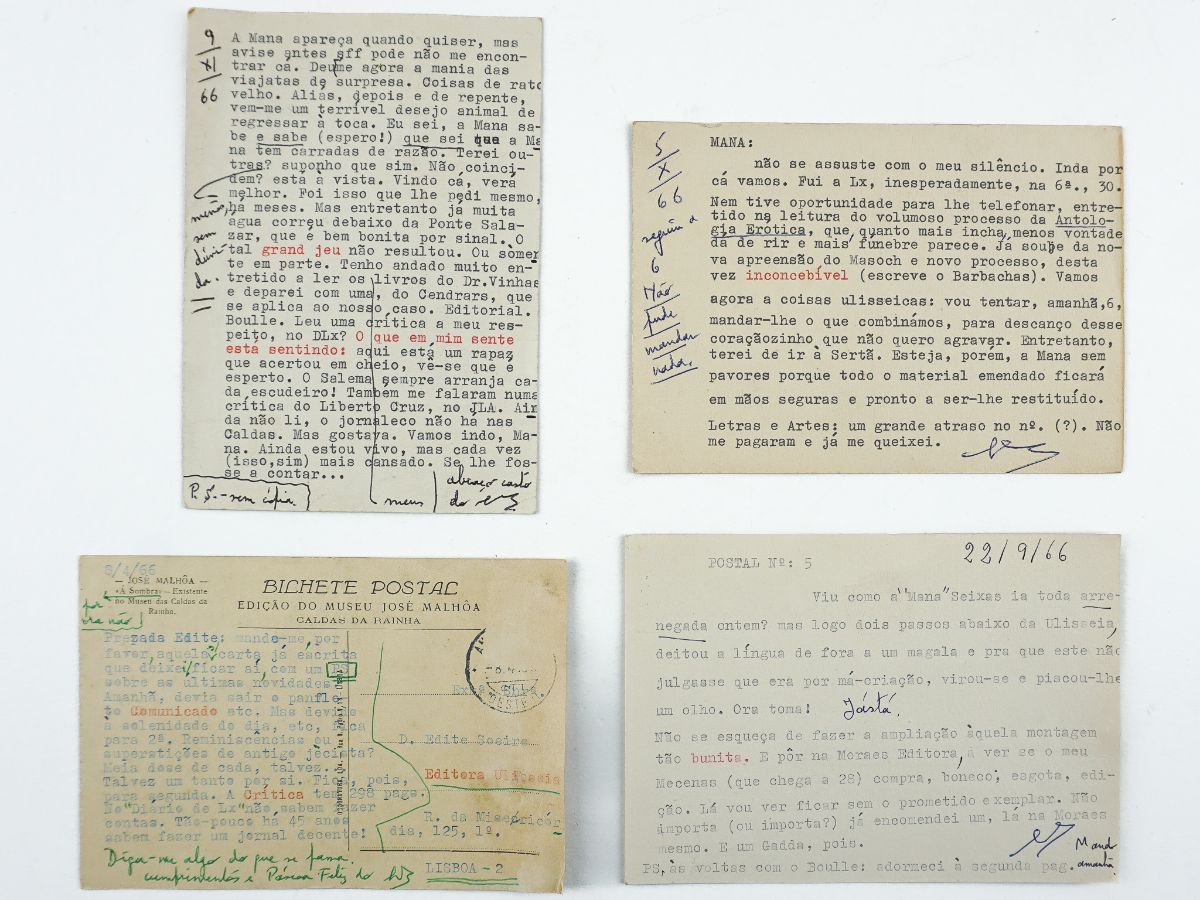 9
XI
66
A Mana apareça quando quiser, mas
avise antes sff pode não me encon-
trar cá. Deu-me agora a mania das
viajatas de surpresa. Coisas de rato
velho. Aliás, depois e de repente,
vem-me um terrível desejo animal de
regressar à toca. Eu sei, a Mana sa-
be e sabe (espero!) que sei que a Ma
na tem carradas de razão. Terei ou-
tras? suponho que sim. Não coinci-
dem? está à vista. Vindo cá, verá
melhor. Foi isso que lhe pedi mesmo,
há meses. Mas entretanto já muita
agua correu debaixo da Ponte Sala-
zar, que é bem bonita por sinal. O
tal grand jeu não resultou. Ou sòmen
te em parte. Tenho andado muito en-
tretido a ler os livros do Dr.Vinhas
e deparei com uma, do Cendrars, que
se aplica ao nosso caso. Editorial.
Boulle. Leu uma crítica a meu res-
peito, no DLx? O que em mim sente
está sentindo: aqui está um rapaz
que acertou em cheio, vê-se que é
esperto. O Salema sempre arranja ca-
da escudeiro! Também me falaram numa
crítica do Liberto Cruz, no JLA. Ain
da não li, o jornaleco não há nas
Caldas. Mas gostava. Vamos indo, Ma-
na. Ainda estou vivo, mas cada vez
(isso,sim) mais cansado. Se lhe fos-
se a contar...
menos,
sem
dúvi
da.
P.S.-sem cópia
meus
abraço casto
do
5
X
66
seguiu a
6
Não
pude
mandar
nada.
MANA:
não se assuste com o meu silêncio. Inda por
cá vamos. Fui a Lx, inesperadamente, na 6ª., 30.
Nem tive oportunidade para lhe telefonar, entre-
tido na leitura do volumoso processo da Antolo-
gia Erótica, que quanto mais incha menos vontade
dá de rir e mais fúnebre parece. Já soube da no-
va apreensão do Masoch e novo processo, desta
vez inconcebível (escreve o Barbachas). Vamos
agora a coisas ulisseicas: vou tentar, amanhã,6,
mandar-lhe o que combinámos, para descanço desse
coraçãozinho que não quero agravar. Entretanto,
terei de ir à Sertã. Esteja, porém, a Mana sem
pavores porque todo o material emendado ficará
em mãos seguras e pronto a ser-lhe restituído.
Letras e Artes: um grande atraso no nº. (?). Não
me pagaram e já me queixei.
8/4/66
— JOSÉ MALHÔA —
«À Sombra» — Existente
no Museu das Caldas da
Rainha.
por
ora não!
BILHETE POSTAL
EDIÇÃO DO MUSEU JOSÉ MALHÔA
CALDAS DA RAINHA
Prezada Edite: mande-me,por
favor,aquela carta já escrita
que deixei ficar aí,com um PS
sobre as últimas novidades.
Amanhã, devia sair o panfle
to Comunicado etc. Mas devido
à solenidade do dia, etc, fica
para 2ª. Reminiscências ou
superstições de antigo jècista?
Meia dose de cada, talvez.
Talvez um tanto por si. Fica, pois,
para segunda. A Crítica tem 298 pags.
No "Diário de Lx" não sabem fazer
contas. Tão-pouco há 45 anos
sabem fazer um jornal decente!
Diga-me algo do que se passa.
cumprimentos e Páscoa Feliz do
D. Edite Soeiro
Editora Ulisseia
R. da Misericór
dia, 125, 1º.
LISBOA - 2
POSTAL Nº: 5
22/9/66
Viu como a "Mana" Seixas ia toda arre-
negada ontem? mas logo dois passos abaixo da Ulisseia,
deitou a língua de fora a um magala e pra que este não
julgasse que era por má-criação, virou-se e piscou-lhe
um olho. Ora toma! Jástá.
Não se esqueça de fazer a ampliação àquela montagem
tão bunita. E pôr na Moraes Editora, a ver se o meu
Mecenas (que chega a 28) compra, boneco, esgota, edi-
ção. Lá vou ver ficar sem o prometido exemplar. Não
importa (ou importa?) já encomendei um, lá na Moraes
mesmo. E um Gadda, pois.
PS,às voltas com o Boulle: adormeci à segunda pag.
Mand
amanhã